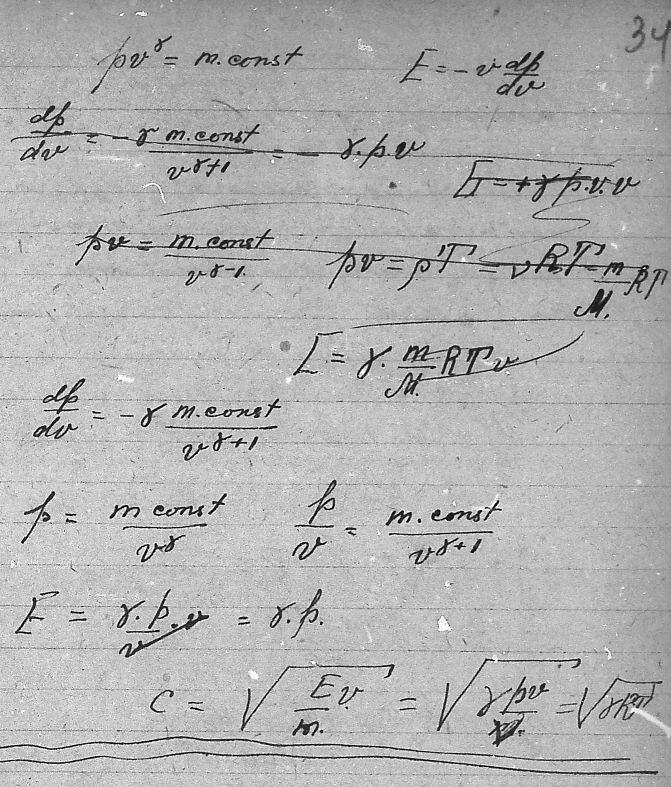 34
pv^γ = m.const E = -v dp/dv
dp/dv = -γ m.const/v^(γ+1) = - γ.pv
E = +γ p.v.v
pv = m.const/v^(γ-1) pv = ρ'T = νRT = m/M. RT
E = γ. m/M. RT v
dp/dv = -γ m.const/v^(γ+1)
p = m const/v^γ p/v = m.const/v^(γ+1)
E = γ.p/v .v = γ.p.
c = √(Ev/m.) = √(γpv/m) = √(γRT)